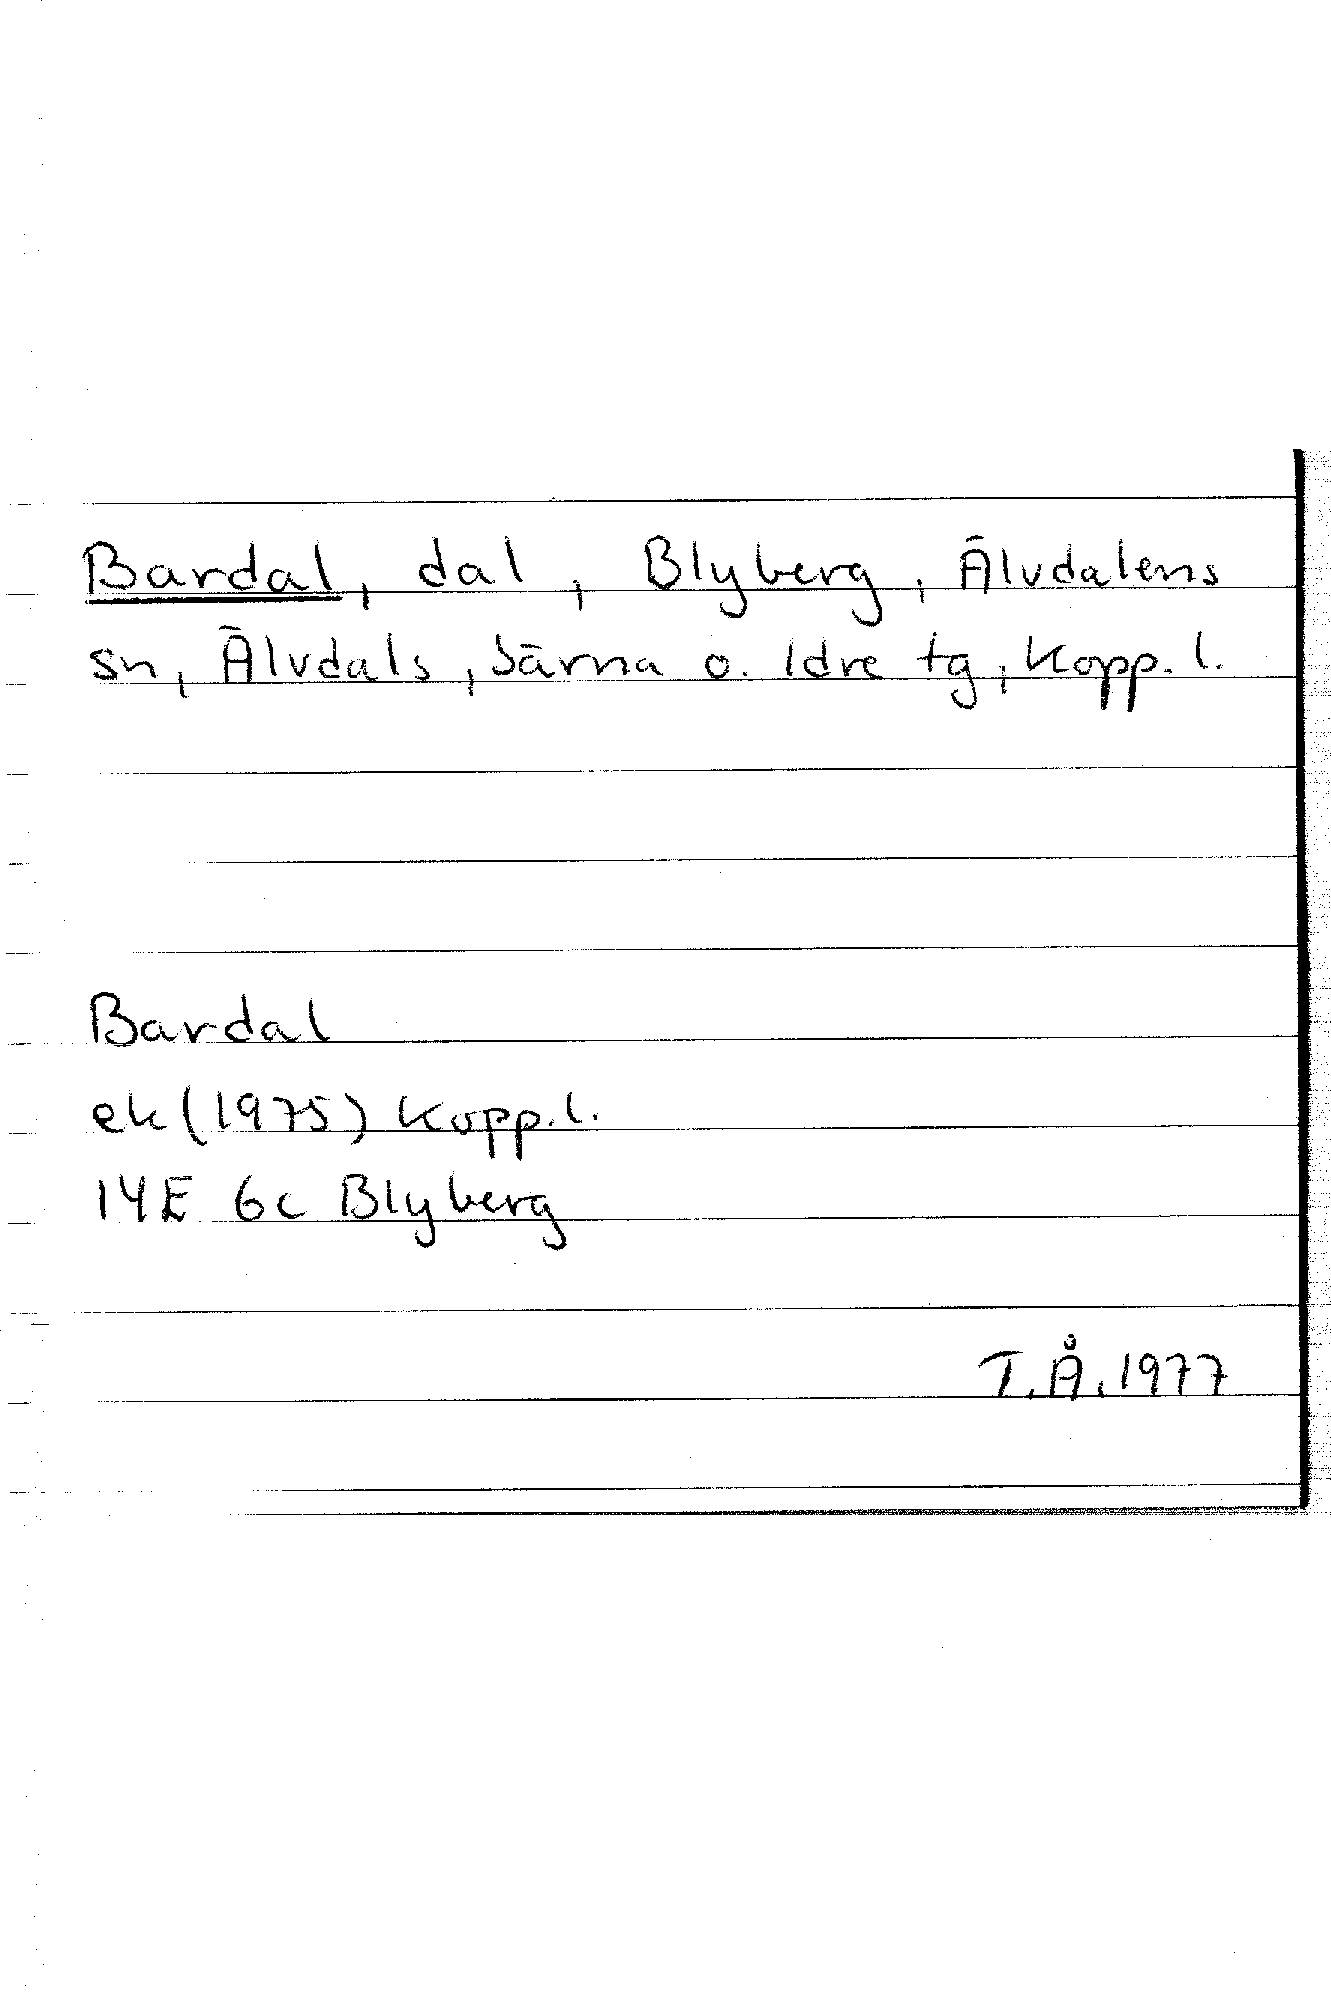 Bardal, dal, Blyberg, Älvdalens
sn, Älvdals, Särna o. Idre tg, Kopp. l.
Bardal
ek (1975) Kopp. l.
14E 6c Blyberg
T.Å. 1977